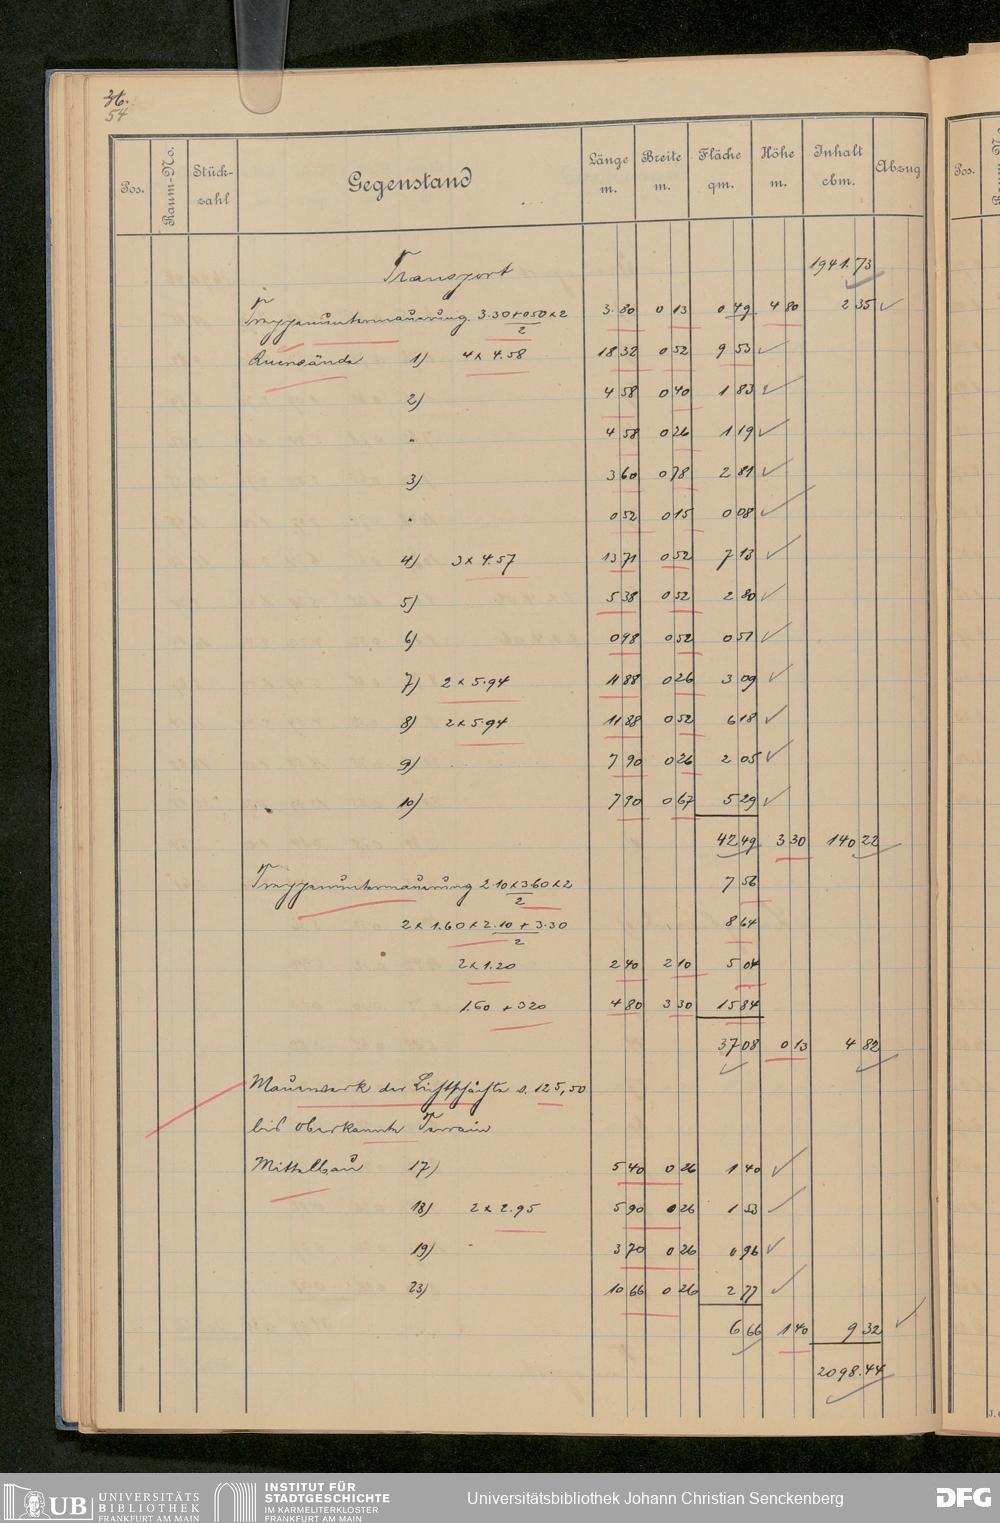 36.
54
Pos. Raum-No. Stück-zahl Gegenstand Länge m. Breite m. Fläche qm. Höhe m. Inhalt cbm. Abzug Pos.
Transport 1941.73
Treppenuntermauerung 3.30+0.50x2/2 3.80 0 13 0 49 4 80 2 35
Querwände 1) 4x4.58 18 32 0 52 9 53
2) 4 58 0 40 1 83
" 4 58 0 26 1 19
3) 3 60 0 78 2 81
" 0 52 0 15 0 08
4) 3x4.57 13 71 0 52 7 13
5) 5 38 0 52 2 80
6) 0 98 0 52 0 51
7) 2x5.94 11 88 0 26 3 09
8) 2x5.94 11 88 0 52 6 18
9) 7 90 0 26 2 05
10) 7 90 0 67 5 29
42 49 3 30 140 22
Treppenuntermauerung 2.10x3.60x2/2 7 56
2x1.60x2.10+3.30/2 8 64
2x1.20 2 40 2 10 5 04
1.60+3.20 4 80 3 30 15 84
37 08 0 13 4 82
Mauerwerk der Lichtschächte v. 125,50
bis Oberkannte Terrain
Mittelbau 17) 5 40 0 26 1 40
18) 2x2.95 5 90 0 26 1 53
19) 3 70 0 26 0 96
23) 10 66 0 26 2 77
6 66 1 40 9 32
2098.44
UB UNIVERSITÄTS BIBLIOTHEK FRANKFURT AM MAIN
INSTITUT FÜR STADTGESCHICHTE IM KARMELITERKLOSTER FRANKFURT AM MAIN
Universitätsbibliothek Johann Christian Senckenberg
DFG